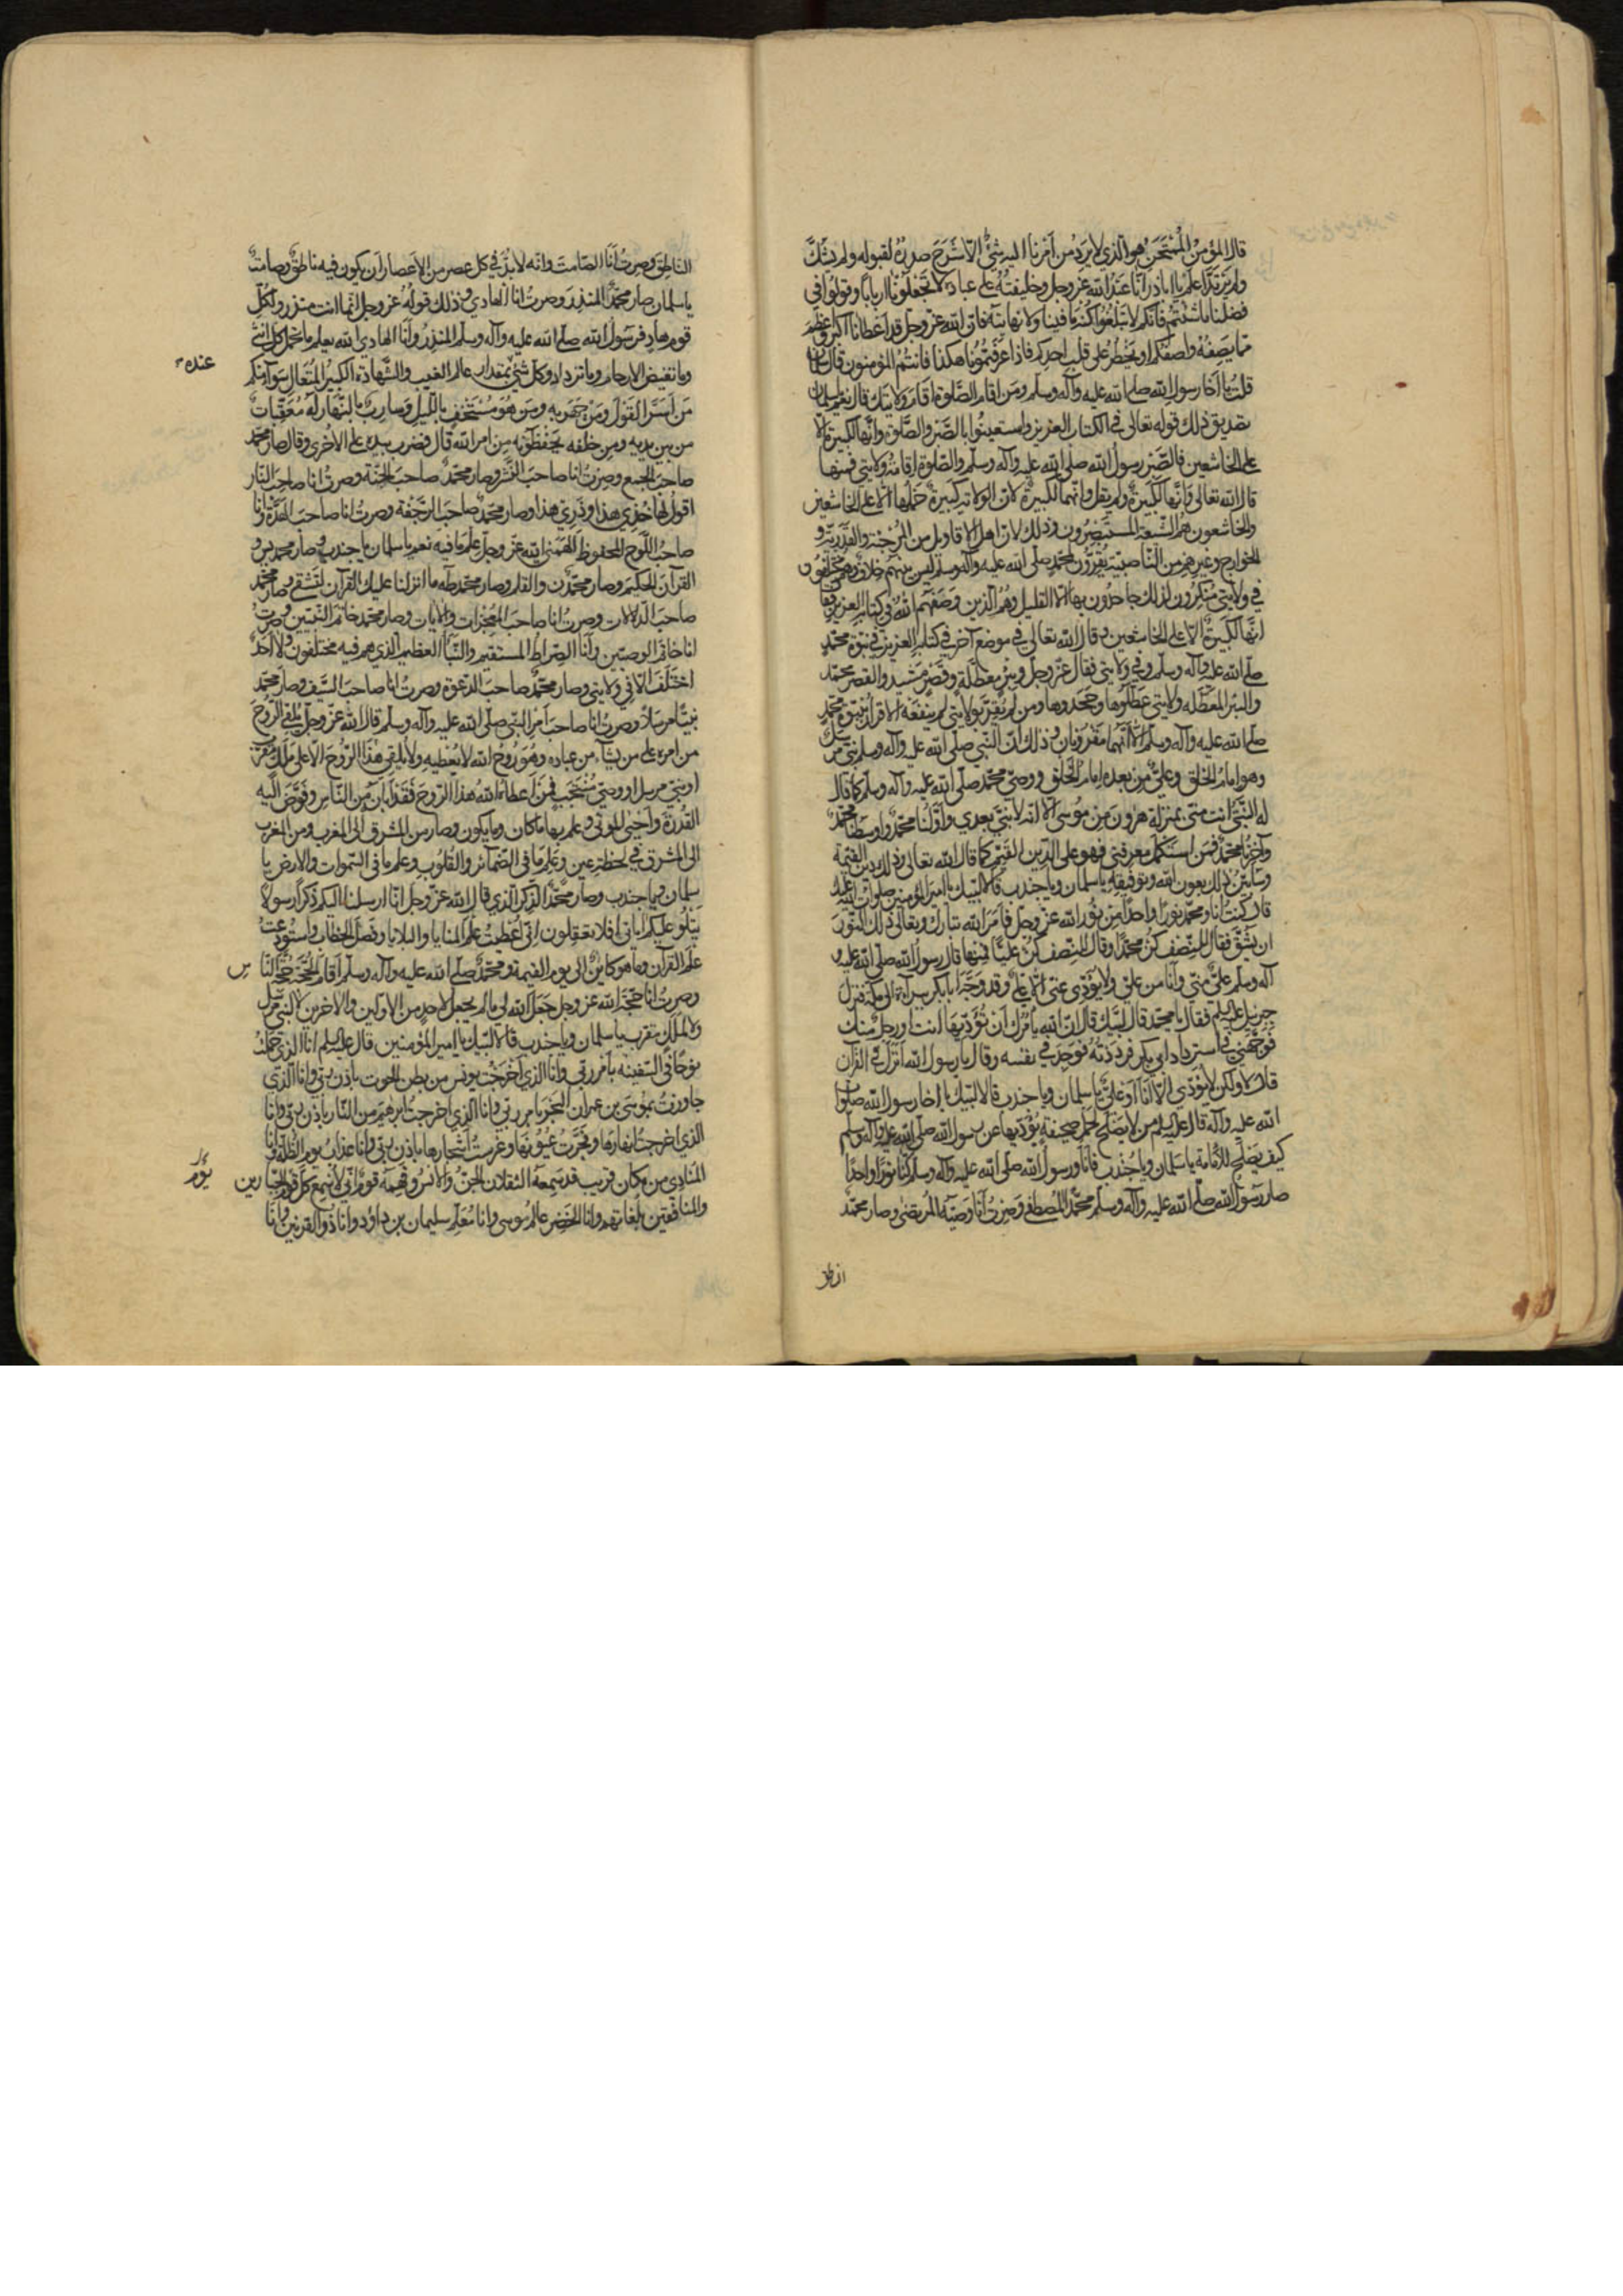 قال المؤمن الممتحن هو الذي لا يرد من أمرنا اليه شئ الا شرح صدره لقبوله ولم يشك
ولم يرتد اعلم يا اباذر انا عبد الله عز وجل وخليفته على عباده لا تجعلونا ارباباً وقولوا في
فضلنا ما شئتم فانكم لا تبلغوا كنه ما فينا ولا نهايته فان الله عز وجل قد اعطانا اكبر واعظم
مما يصفه واصفكم او يخطر على قلب احدكم فاذا عرفتمونا هكذا فانتم المؤمنون قال سلمان
قلت يا أخا رسول الله صلى الله عليه وآله وسلم ومن اقام الصلوة اقام ولايتك قال نعم يا سلمان
تصديق ذلك قوله تعالى في الكتاب العزيز واستعينوا بالصبر والصلوة وانها لكبيرة الا
على الخاشعين فالصبر رسول الله صلى الله عليه وآله وسلم والصلوة اقامة ولايتي فمنها
قال الله تعالى وانها لكبيرة ولم يقل وانهما لكبيرة لان الولاية كبيرة حملها الا على الخاشعين
والخاشعون هم الشيعة المستبصرون وذلك لان اهل الاقاويل من المرجئة والقدرية و
الخوارج وغيرهم من الناصبية يقرون لمحمد صلى الله عليه وآله وسلم ليس بينهم خلاف وهم مختلفون
في ولايتي منكرون لذلك جاحدون بها الا القليل وهم الذين وصفهم الله في كتابه العزيز فقال
انها لكبيرة الا على الخاشعين وقال الله تعالى في موضع آخر في كتابه العزيز في نبوة محمد
صلى الله عليه وآله وسلم وفي ولايتي فقال عز وجل وبئر معطلة وقصر مشيد والقصر محمد
والبئر المعطلة ولايتي عطلوها وجحدوها ومن لم يقر بولايتي لم ينفعه الاقرار بنبوة محمد
صلى الله عليه وآله وسلم الا انهما مقرونان وذلك أن النبي صلى الله عليه وآله وسلم نبي مرسل
وهو امام الخلق وعلي من بعده امام الخلق ووصي محمد صلى الله عليه وآله وسلم كما قال
له النبي انت مني بمنزلة هرون من موسى الا انه لا نبي بعدي واولنا محمد واوسطنا محمد
وآخرنا محمد فمن استكمل معرفتي فهو على الدين القيم كما قال الله تعالى وذلك دين القيمة
وسأبين ذلك بعون الله وتوفيقه يا سلمان ويا جندب قالا لبيك يا امير المؤمنين صلوات الله عليك
قال كنت انا ومحمد نوراً واحداً من نور الله عز وجل فأمر الله تبارك وتعالى ذلك النور
ان يشق فقال للنصف كن محمداً وقال للنصف كن علياً فمنها قال رسول الله صلى الله عليه و
آله وسلم علي مني وأنا من علي ولا يؤدي عني الا علي وقد وجه ابا بكر ببراءة الى مكة فنزل
جبرئيل عليه السلم فقال يا محمد قال لبيك قال ان الله يأمرك ان تؤديها انت او رجل منك
فوجهني في استرداد ابي بكر فرددته فوجد في نفسه وقال يا رسول الله أنزل في القرآن
قال لا ولكن لا يؤدي الا أنا أو علي يا سلمان ويا جندب قالا لبيك يا اخا رسول الله صلوات
الله عليه وآله قال عليه السلم من لا يصلح لحمل صحيفة يؤديها عن رسول الله صلى الله عليه وآله وسلم
كيف يصلح للامامة يا سلمان ويا جندب فأنا ورسول الله صلى الله عليه وآله وسلم كنا نوراً واحداً
صار رسول الله صلى الله عليه وآله وسلم محمد المصطفى وصرت أنا وصيه المرتضى وصار محمد
الناطق وصرت أنا الصامت وانه لا بد في كل عصر من الأعصار أن يكون فيه ناطق وصامت
يا سلمان صار محمد المنذر وصرت انا الهادي وذلك قوله عز وجل انما انت منذر ولكل
قوم هاد فرسول الله صلى الله عليه وآله وسلم المنذر وأنا الهادي الله يعلم ما تحمل كل انثى
وما تغيض الارحام وما تزداد وكل شئ بمقدار عالم الغيب والشهادة الكبير المتعال سواء منكم
عنده
من أسر القول ومن جهر به ومن هو مستخف بالليل وسارب بالنهار له معقبات
من بين يديه ومن خلفه يحفظونه من امر الله قال فضرب بيده على الاخرى وقال صار محمد
صاحب الجمع وصرت انا صاحب النشر وصار محمد صاحب الجنة وصرت انا صاحب النار
اقول لها خذي هذا وذري هذا وصار محمد صاحب الرجفة وصرت انا صاحب الهدة وأنا
صاحب اللوح المحفوظ الهمني الله عز وجل علم ما فيه نعم يا سلمان يا جندب وصار محمد يس و
القرآن الحكيم وصار محمد ن والقلم وصار محمد طه ما انزلنا عليك القرآن لتشقى وصار محمد
صاحب الدلالات وصرت انا صاحب المعجزات والآيات وصار محمد خاتم النبيين وصرت
انا خاتم الوصيين وأنا الصراط المستقيم والنبأ العظيم الذي هم فيه مختلفون ولا احد
اختلف الا في ولايتي وصار محمد صاحب الدعوة وصرت انا صاحب السيف وصار محمد
نبياً مرسلاً وصرت انا صاحب أمر النبي صلى الله عليه وآله وسلم قال الله عز وجل يلقي الروح
من امره على من يشاء من عباده وهو روح الله لا يعطيه ولا يلقي هذا الروح الا على ملك مقرب
او نبي مرسل او وصي منتجب فمن اعطاه الله هذا الروح فقد ابانه من الناس وفوض اليه
القدرة واحيى الموتى وعلم بها ما كان وما يكون وصار من المشرق الى المغرب ومن المغرب
الى المشرق في لحظة عين وعلم ما في الضمائر والقلوب وعلم ما في السموات والارض يا
سلمان ويا جندب وصار محمد الذكر الذي قال الله عز وجل انا ارسلنا اليكم ذكراً رسولاً
يتلو عليكم آياتي افلا تعقلون اني أعطيت علم المنايا والبلايا وفصل الخطاب واستودعت
علم القرآن وما هو كائن الى يوم القيمة ومحمد صلى الله عليه وآله وسلم اقام الحجة حجة للناس
وصرت انا حجة الله عز وجل جعل الله لي ما لم يجعل لاحد من الاولين والآخرين لا لنبي مرسل
ولا لملك مقرب يا سلمان ويا جندب قالا لبيك يا امير المؤمنين قال عليه السلم أنا الذي حملت
نوحاً في السفينة بأمر ربي وأنا الذي أخرجت يونس من بطن الحوت باذن ربي وانا الذي
جاوزت بموسى بن عمران البحر بامر ربي وانا الذي اخرجت ابرهيم من النار باذن ربي وانا
الذي اخرجت انهارها وفجرت عيونها وغرست اشجارها باذن ربي وانا عذاب يوم الظلة وانا
المنادي من مكان قريب قد سمعه الثقلان الجن والانس وفهمه قوم اني لأسمع كل قوم الجبارين
يوم
والمنافقين بلغاتهم وانا الخضر عالم موسى وانا معلم سليمان بن داود وانا ذو القرنين وانا